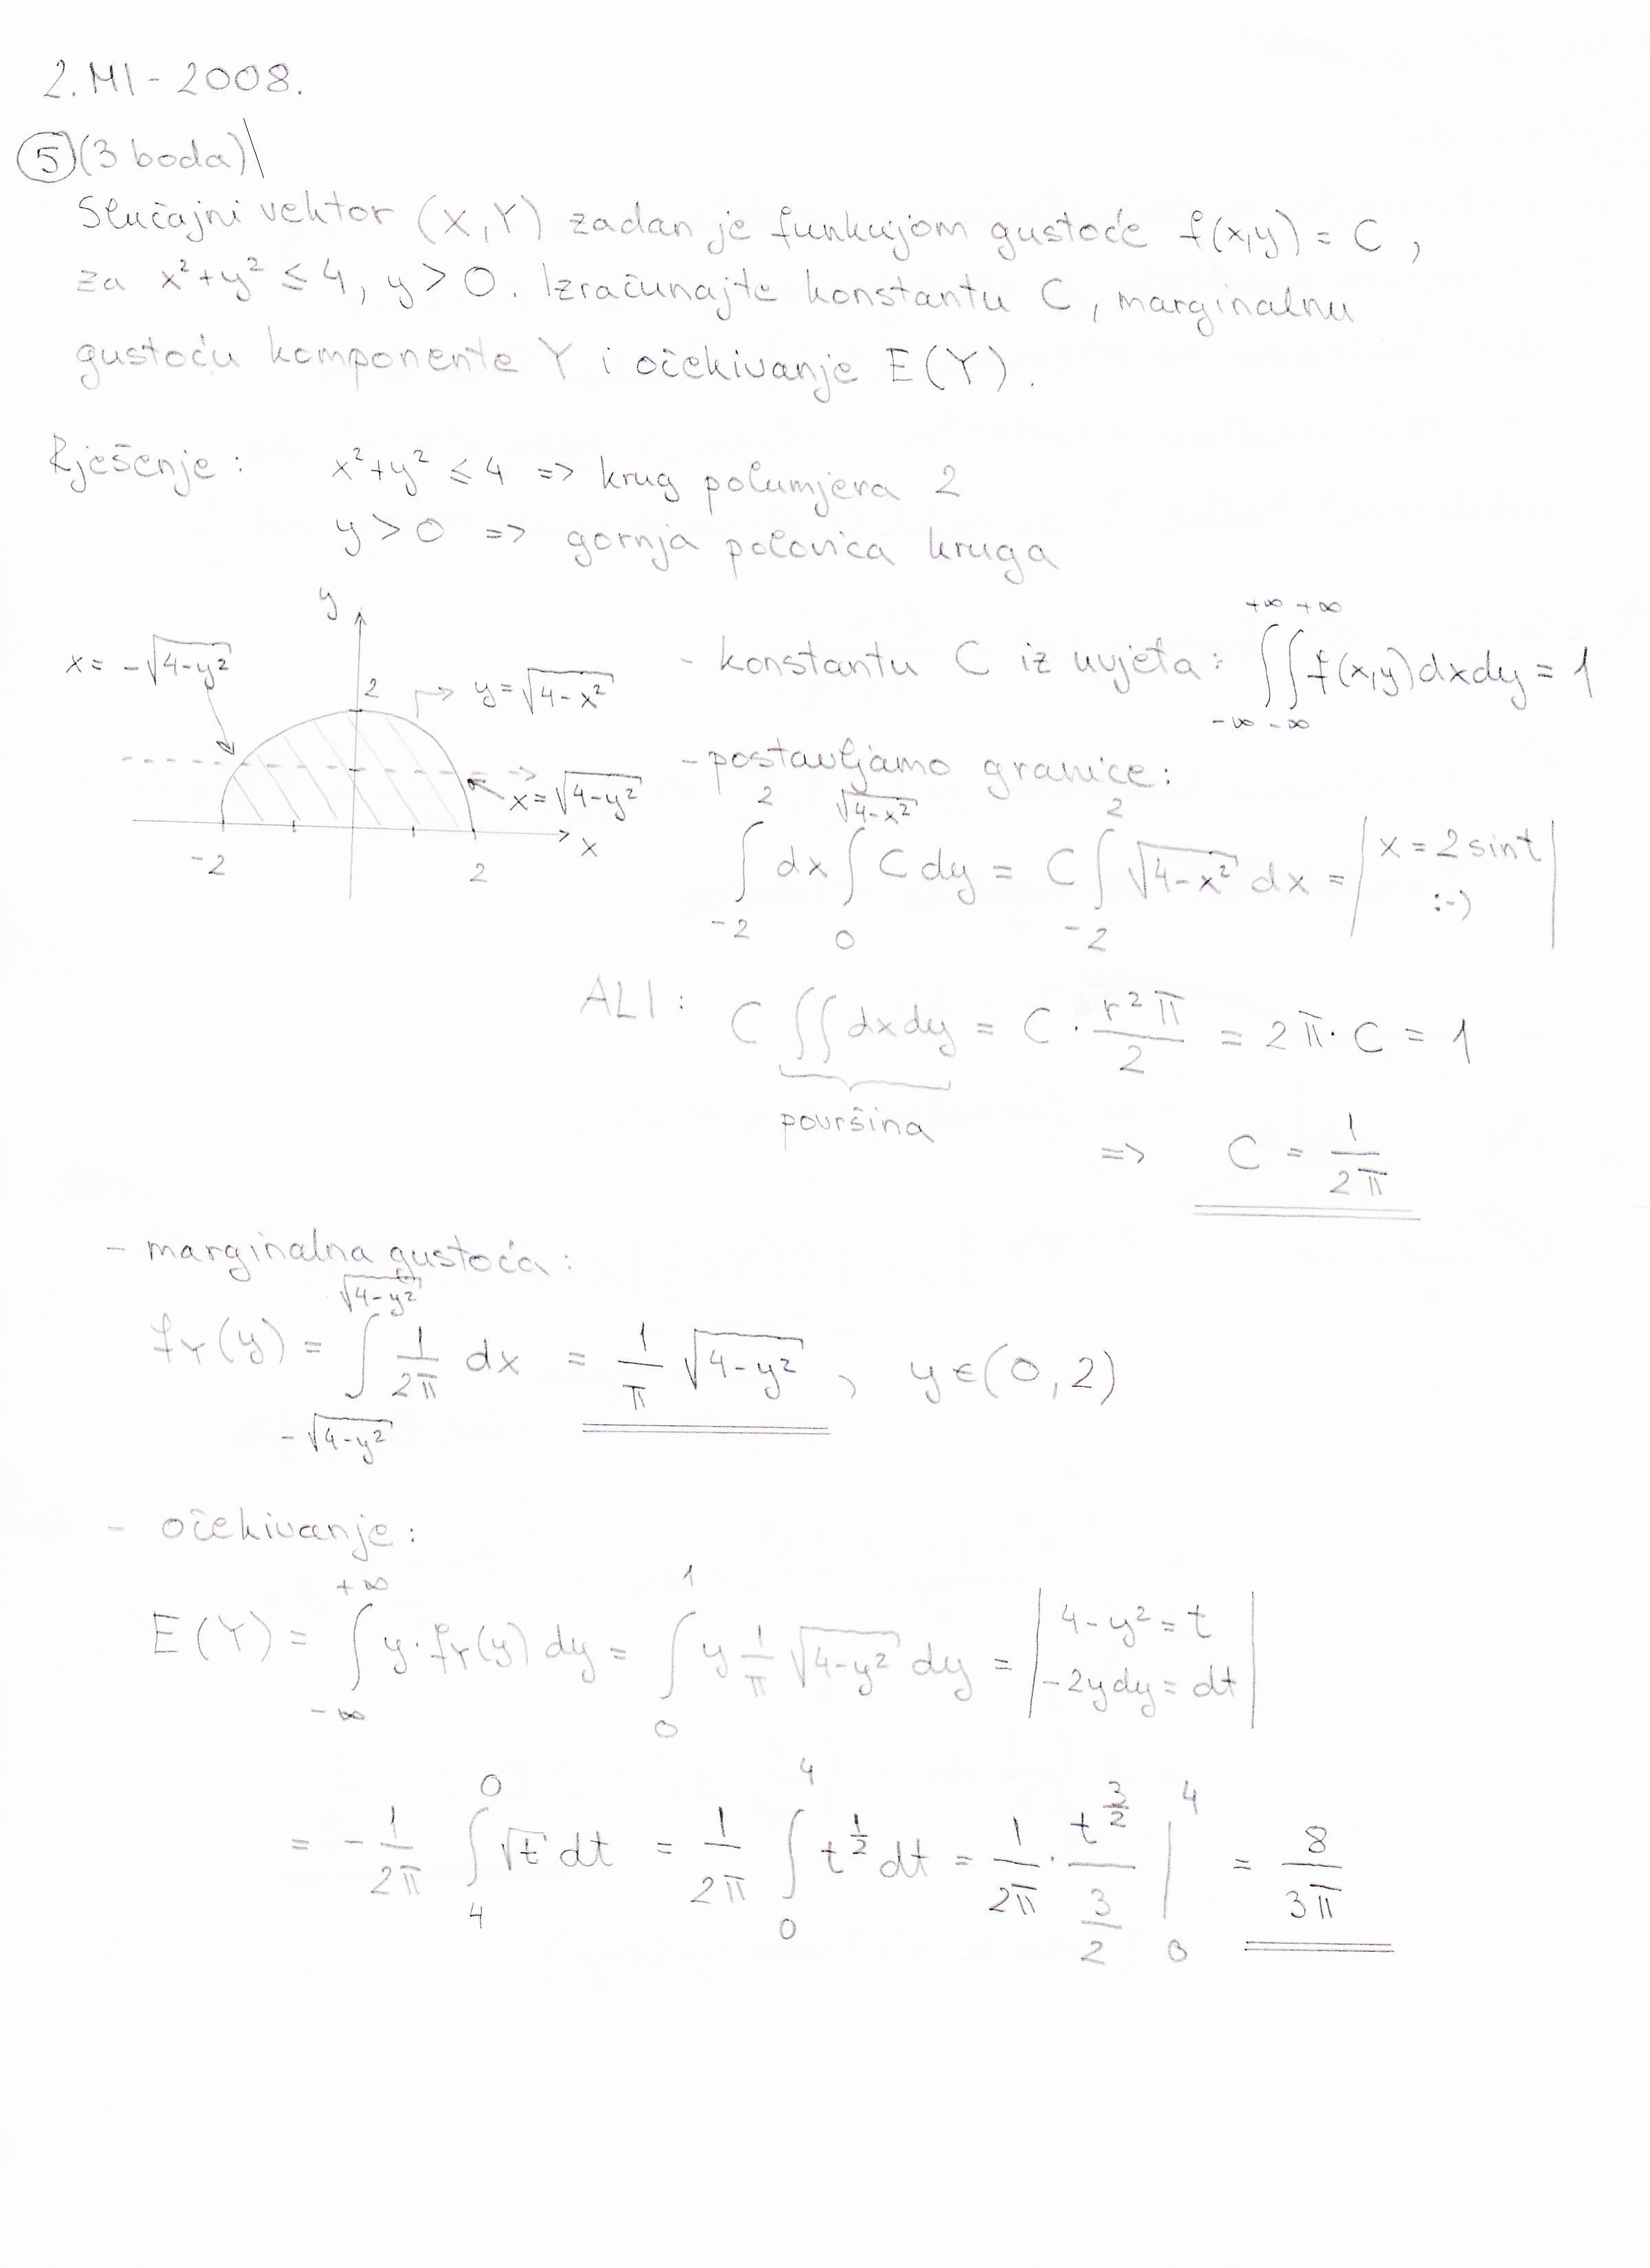 2. MI - 2008.
5 (3 boda)
Slučajni vektor (X,Y) zadan je funkcijom gustoće f(x,y) = C,
za x²+y² ≤ 4, y > 0. Izračunajte konstantu C, marginalnu
gustoću komponente Y i očekivanje E(Y).
Rješenje: x²+y² ≤ 4 => krug polumjera 2
y > 0 => gornja polovica kruga
y
x = -√(4-y²)
2
y = √(4-x²)
x = √(4-y²)
-2 2 x
- konstantu C iz uvjeta: ∫_{-∞}^{+∞} ∫_{-∞}^{+∞} f(x,y) dx dy = 1
- postavljamo granice:
∫_{-2}^{2} dx ∫_{0}^{√(4-x²)} C dy = C ∫_{-2}^{2} √(4-x²) dx = | x = 2 sint :-) |
ALI: C ∫∫ dx dy = C · r²π/2 = 2π · C = 1
površina
=> C = 1/2π
- marginalna gustoća:
f_Y(y) = ∫_{-√(4-y²)}^{√(4-y²)} 1/2π dx = 1/π √(4-y²), y ∈ (0,2)
- očekivanje:
E(Y) = ∫_{-∞}^{+∞} y · f_Y(y) dy = ∫_{0}^{1} y 1/π √(4-y²) dy = | 4-y² = t -2y dy = dt |
= - 1/2π ∫_{4}^{0} √t dt = 1/2π ∫_{0}^{4} t^{1/2} dt = 1/2π · t^{3/2} / (3/2) |_{0}^{4} = 8/3π